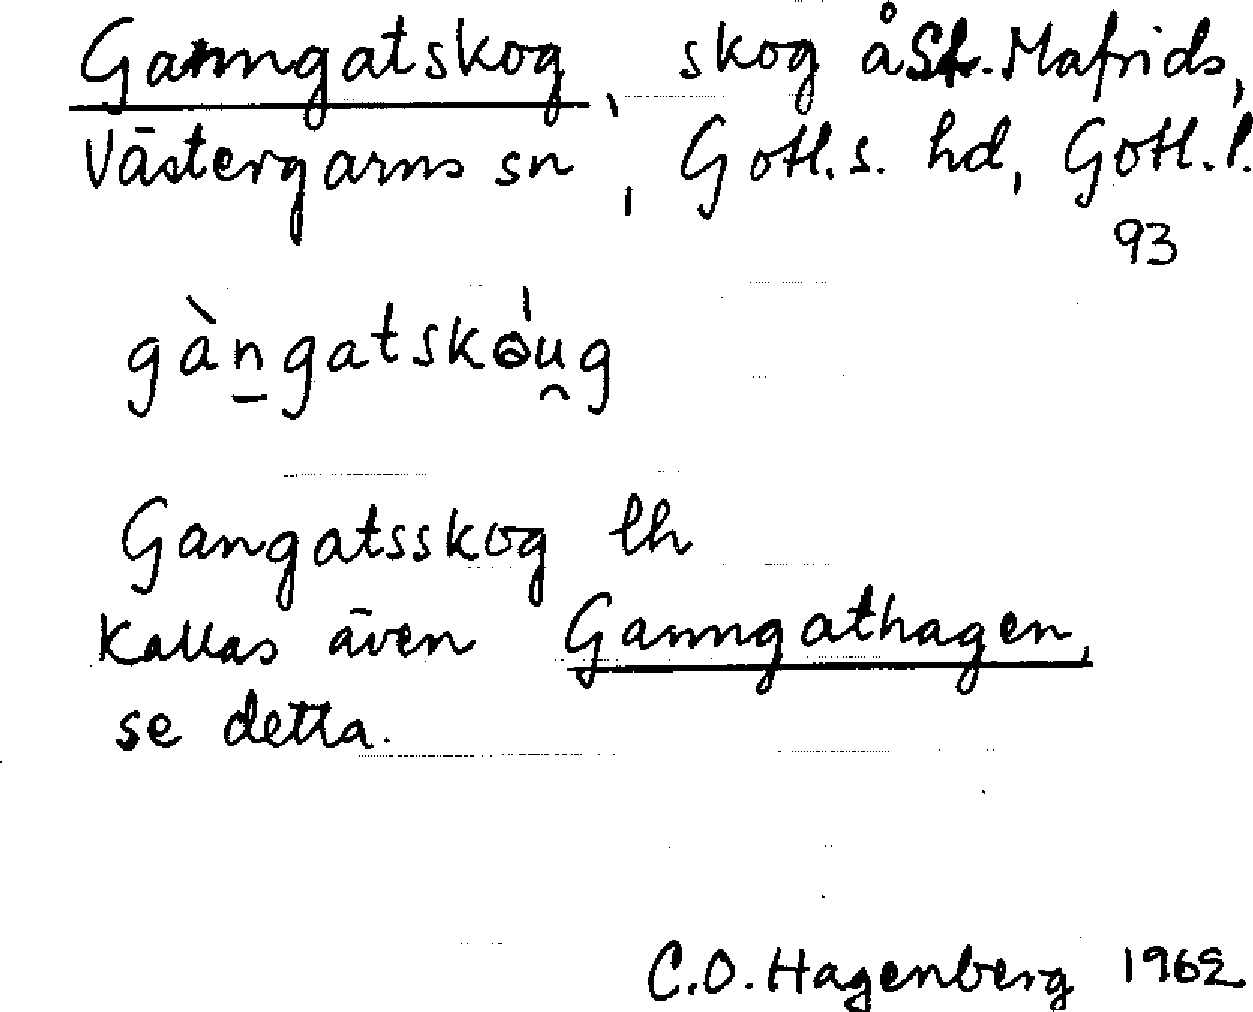 Ganngatskog, skog å St. Mafrids,
Västergarns sn, Gotl. s. hd, Gotl. l.
93
gàn̠gatskɷ́u̯g
Gangatsskog lh
Kallas även Ganngathagen,
se detta.
C.O. Hagenberg 1962